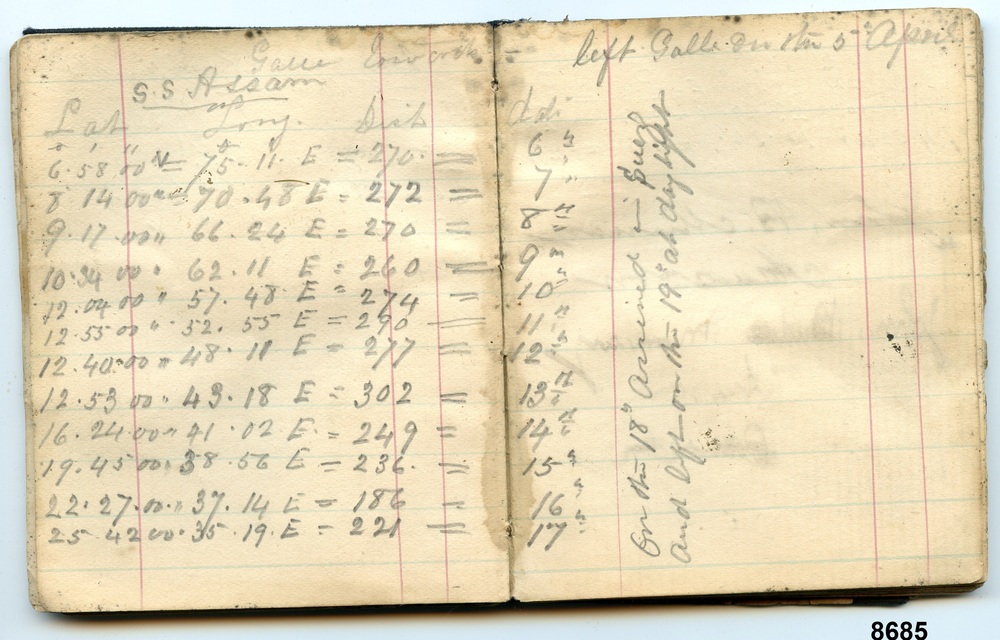 Galle
S.S Assam
Lat Long. Dist
6.58 00 N = 75.11. E = 270. = 6 "
8 14 00 " = 70.48 E = 272 = 7 "
9.17.00 " 66.24 E = 270 = 8 "
10.34 00 " 62.11 E = 260 = 9 "
12.04 00 " 57.48 E = 274 = 10 "
12.55 00 " 52.55 E = 290 = 11 "
12.40.00 " 48.11 E = 277 = 12 "
12.53 00 " 43.18 E = 302 = 13 "
16.24.00 " 41.02 E = 249 = 14 "
19.45 00 " 38.56 E = 236. = 15 "
22.27.00. " 37.14 E = 186 = 16 "
25 42 00 " 35.19.E = 221 = 17 "
left Galle on the 5 April
On the 18th Arrived in Suez
and left on the 19th at daylight
8685